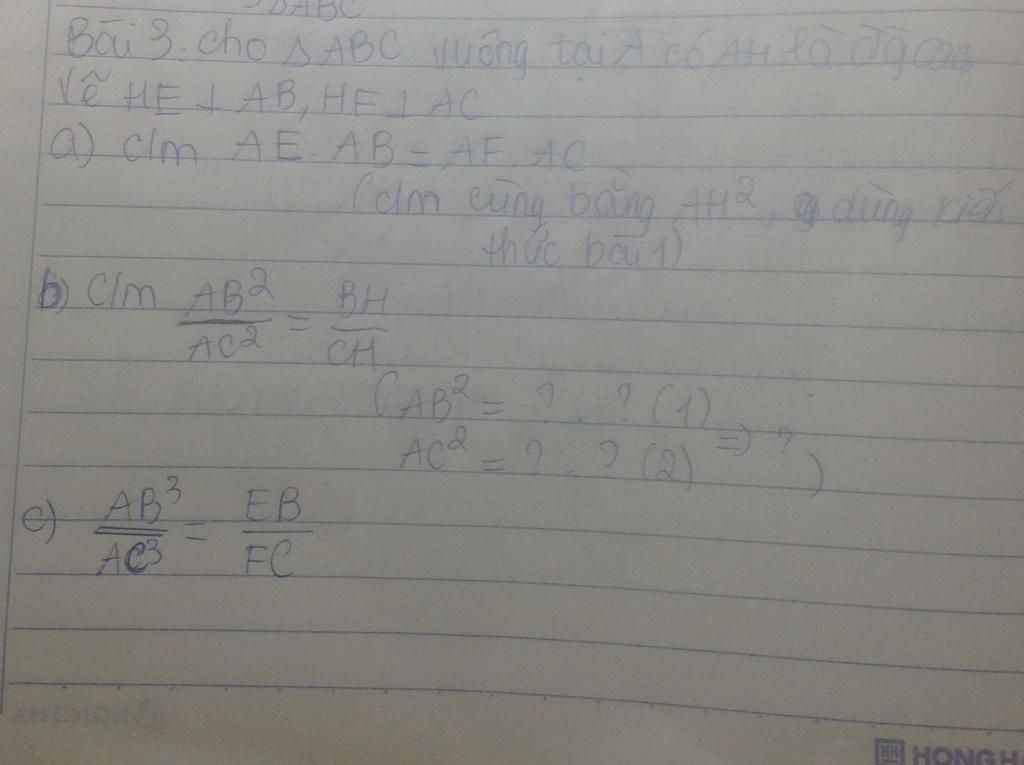 ΔABC
Bài 3. cho ΔABC vuông tại A có AH là đg cao
Vẽ HE ⊥ AB, HF ⊥ AC
a) c/m AE. AB = AF AC
(c/m cùng bằng AH², dùng kiến
thức bài 1)
b) c/m AB²/AC² = BH/CH
(AB² = ? . ? (1)
AC² = ? . ? (2) => ? )
c) AB³/AC³ = EB/FC
HONG H